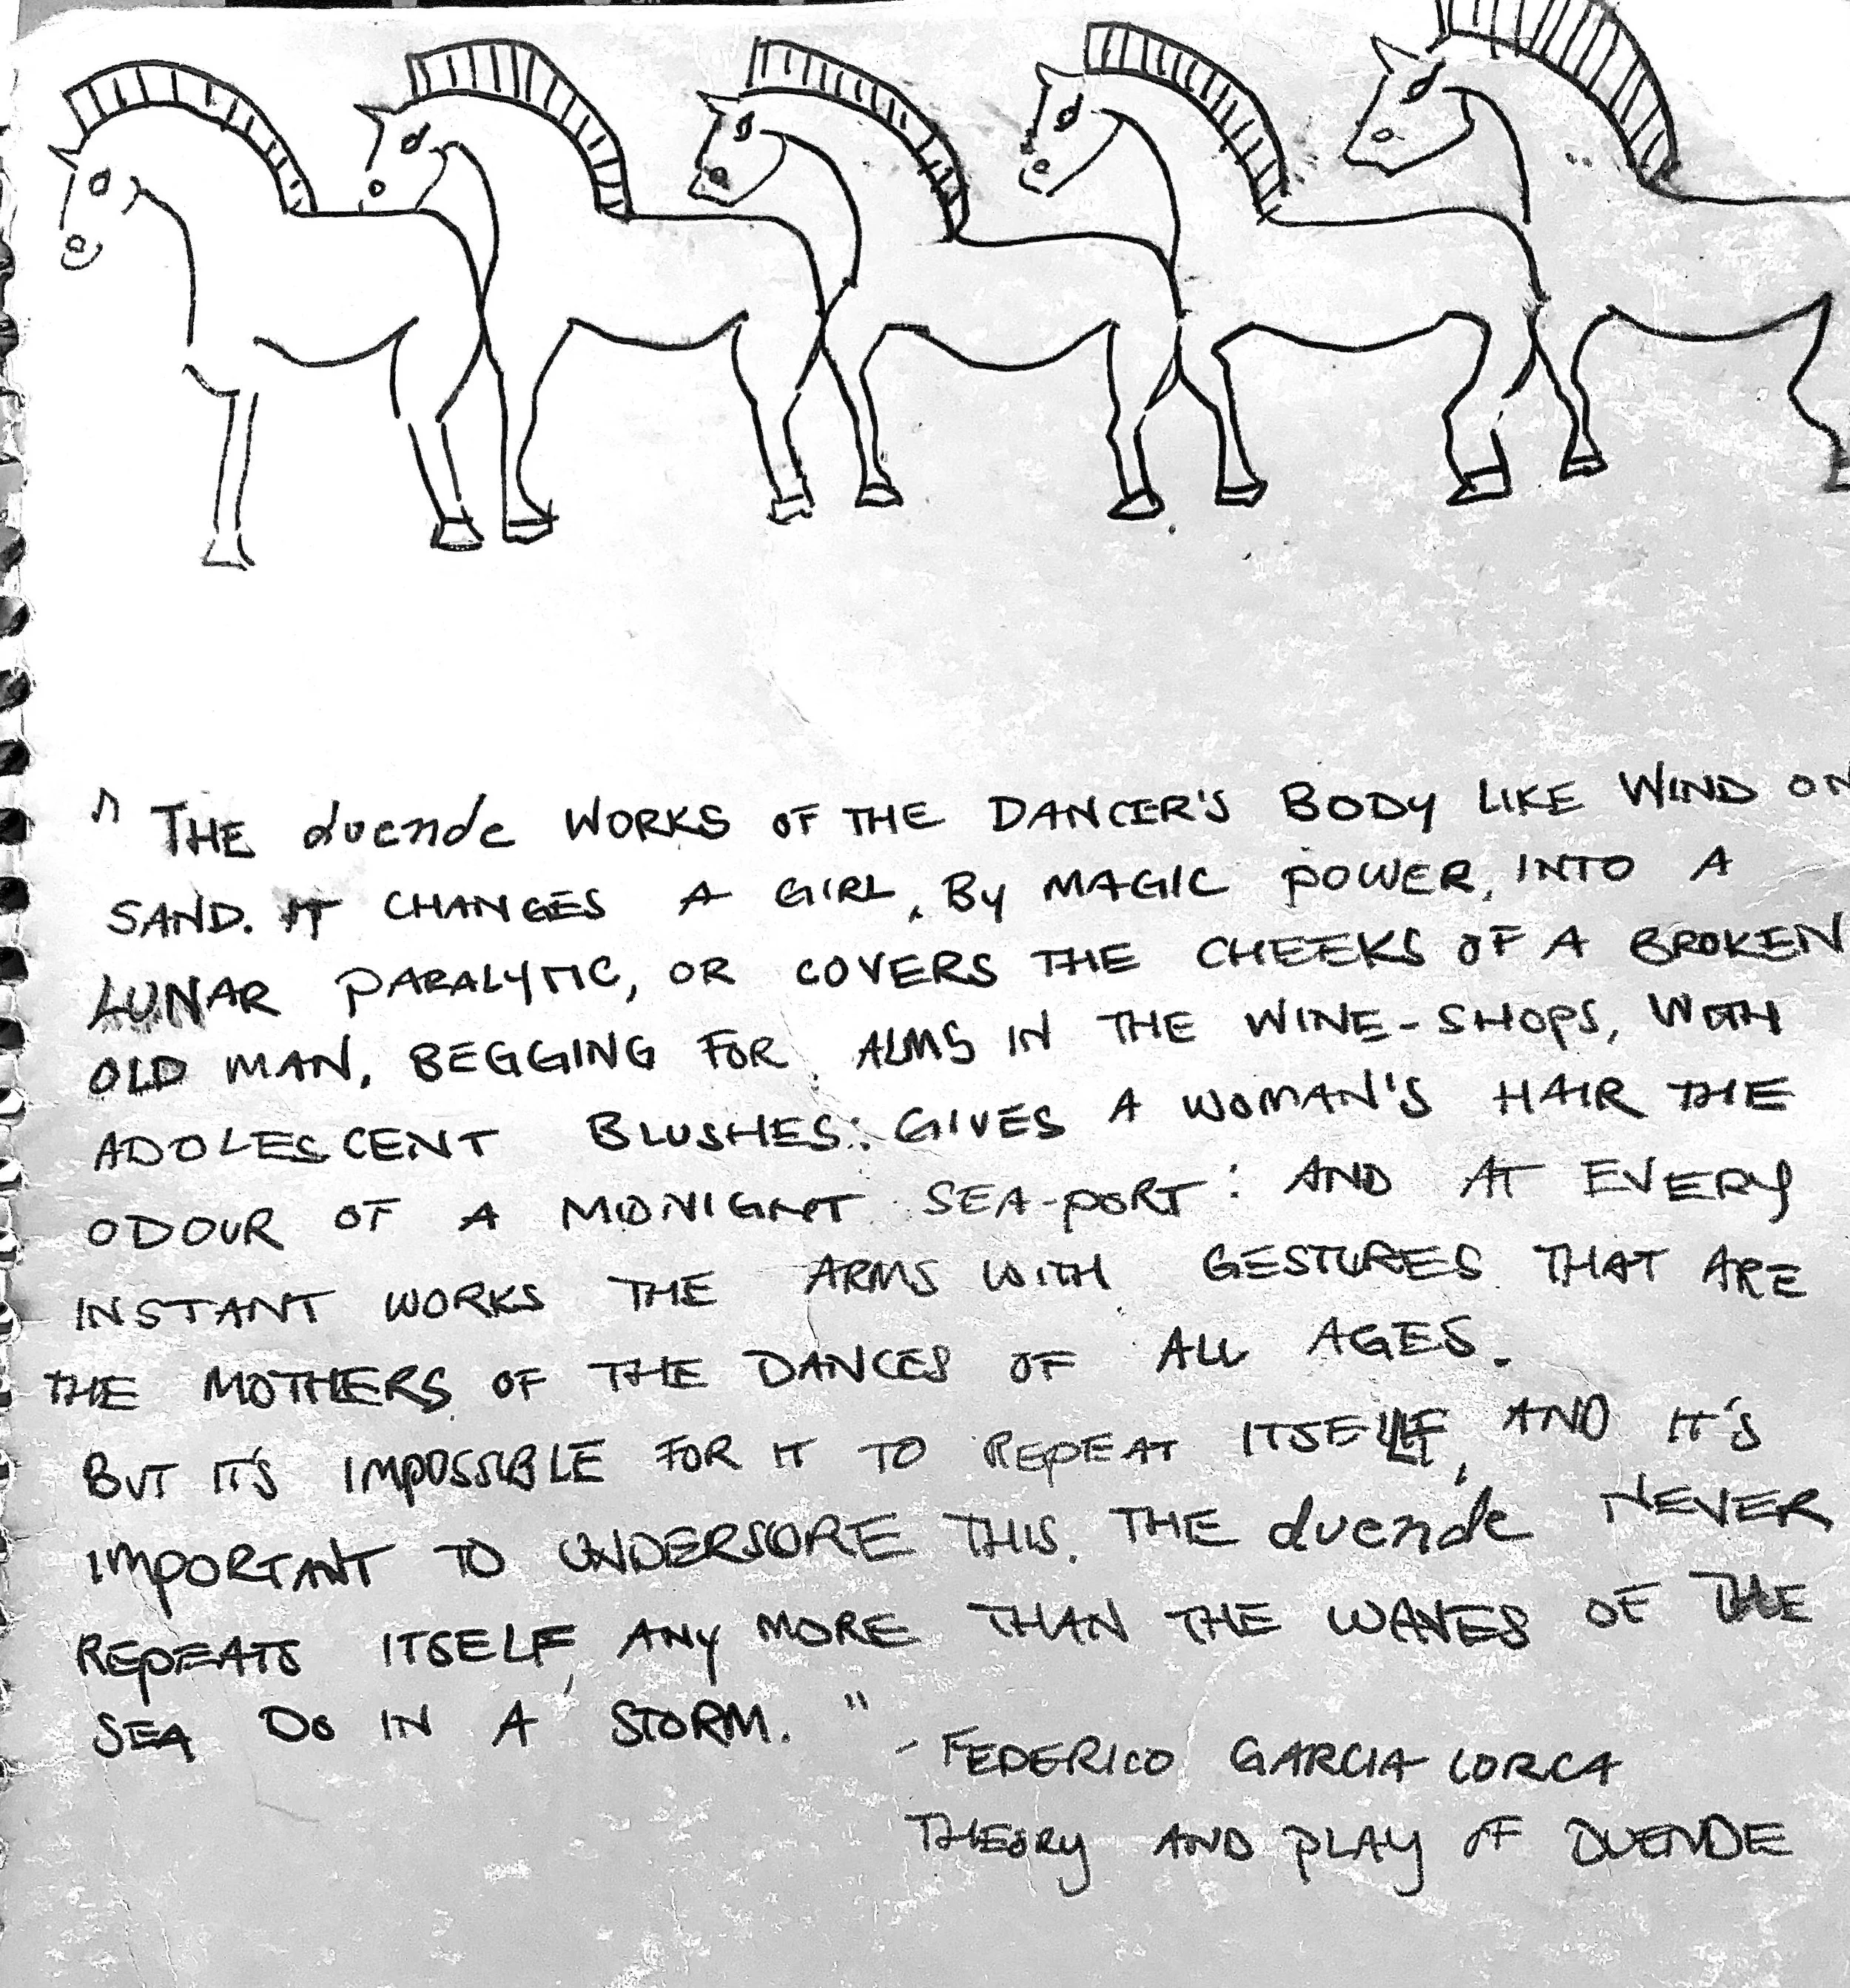 " THE duende WORKS OF THE DANCER'S BODY LIKE WIND ON
SAND. IT CHANGES A GIRL, BY MAGIC POWER, INTO A
LUNAR PARALYTIC, OR COVERS THE CHEEKS OF A BROKEN
OLD MAN, BEGGING FOR ALMS IN THE WINE-SHOPS, WITH
ADOLESCENT BLUSHES: GIVES A WOMAN'S HAIR THE
ODOUR OF A MIDNIGHT SEA-PORT: AND AT EVERY
INSTANT WORKS THE ARMS WITH GESTURES THAT ARE
THE MOTHERS OF THE DANCES OF ALL AGES.
BUT IT'S IMPOSSIBLE FOR IT TO REPEAT ITSELF, AND IT'S
IMPORTANT TO UNDERSORE THIS. THE duende NEVER
REPEATS ITSELF, ANY MORE THAN THE WAVES OF THE
SEA DO IN A STORM. "
- FEDERICO GARCIA LORCA
THEORY AND PLAY OF DUENDE